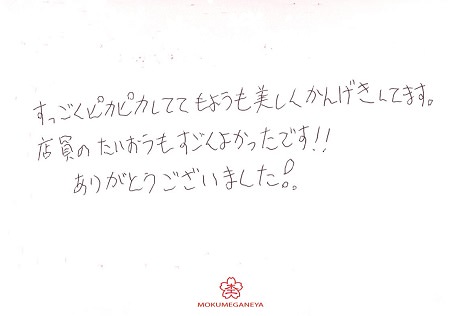 すっごくピカピカしててもようも美しくかんげきしてます。
店員のたいおうもすごくよかったです!!
ありがとうございました!。
MOKUMEGANEYA